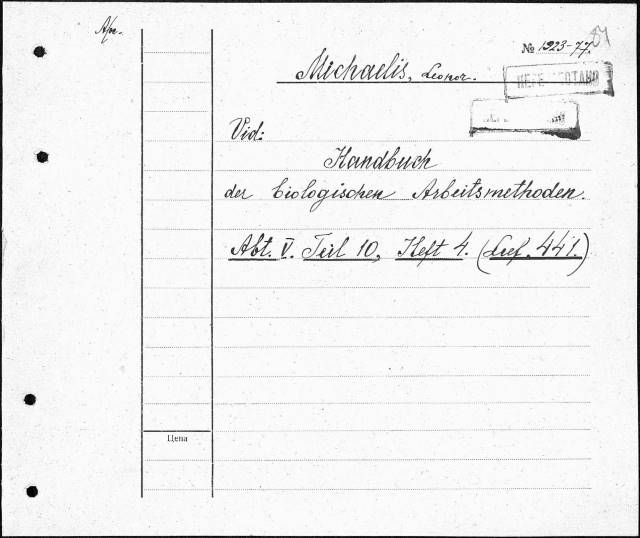 № 1923-77.
Michaelis, Leonor.
Vid:
Handbuch
der biologischen Arbeitsmethoden.
Abt. V. Teil 10, Heft 4. (Lief. 441.)
Цена